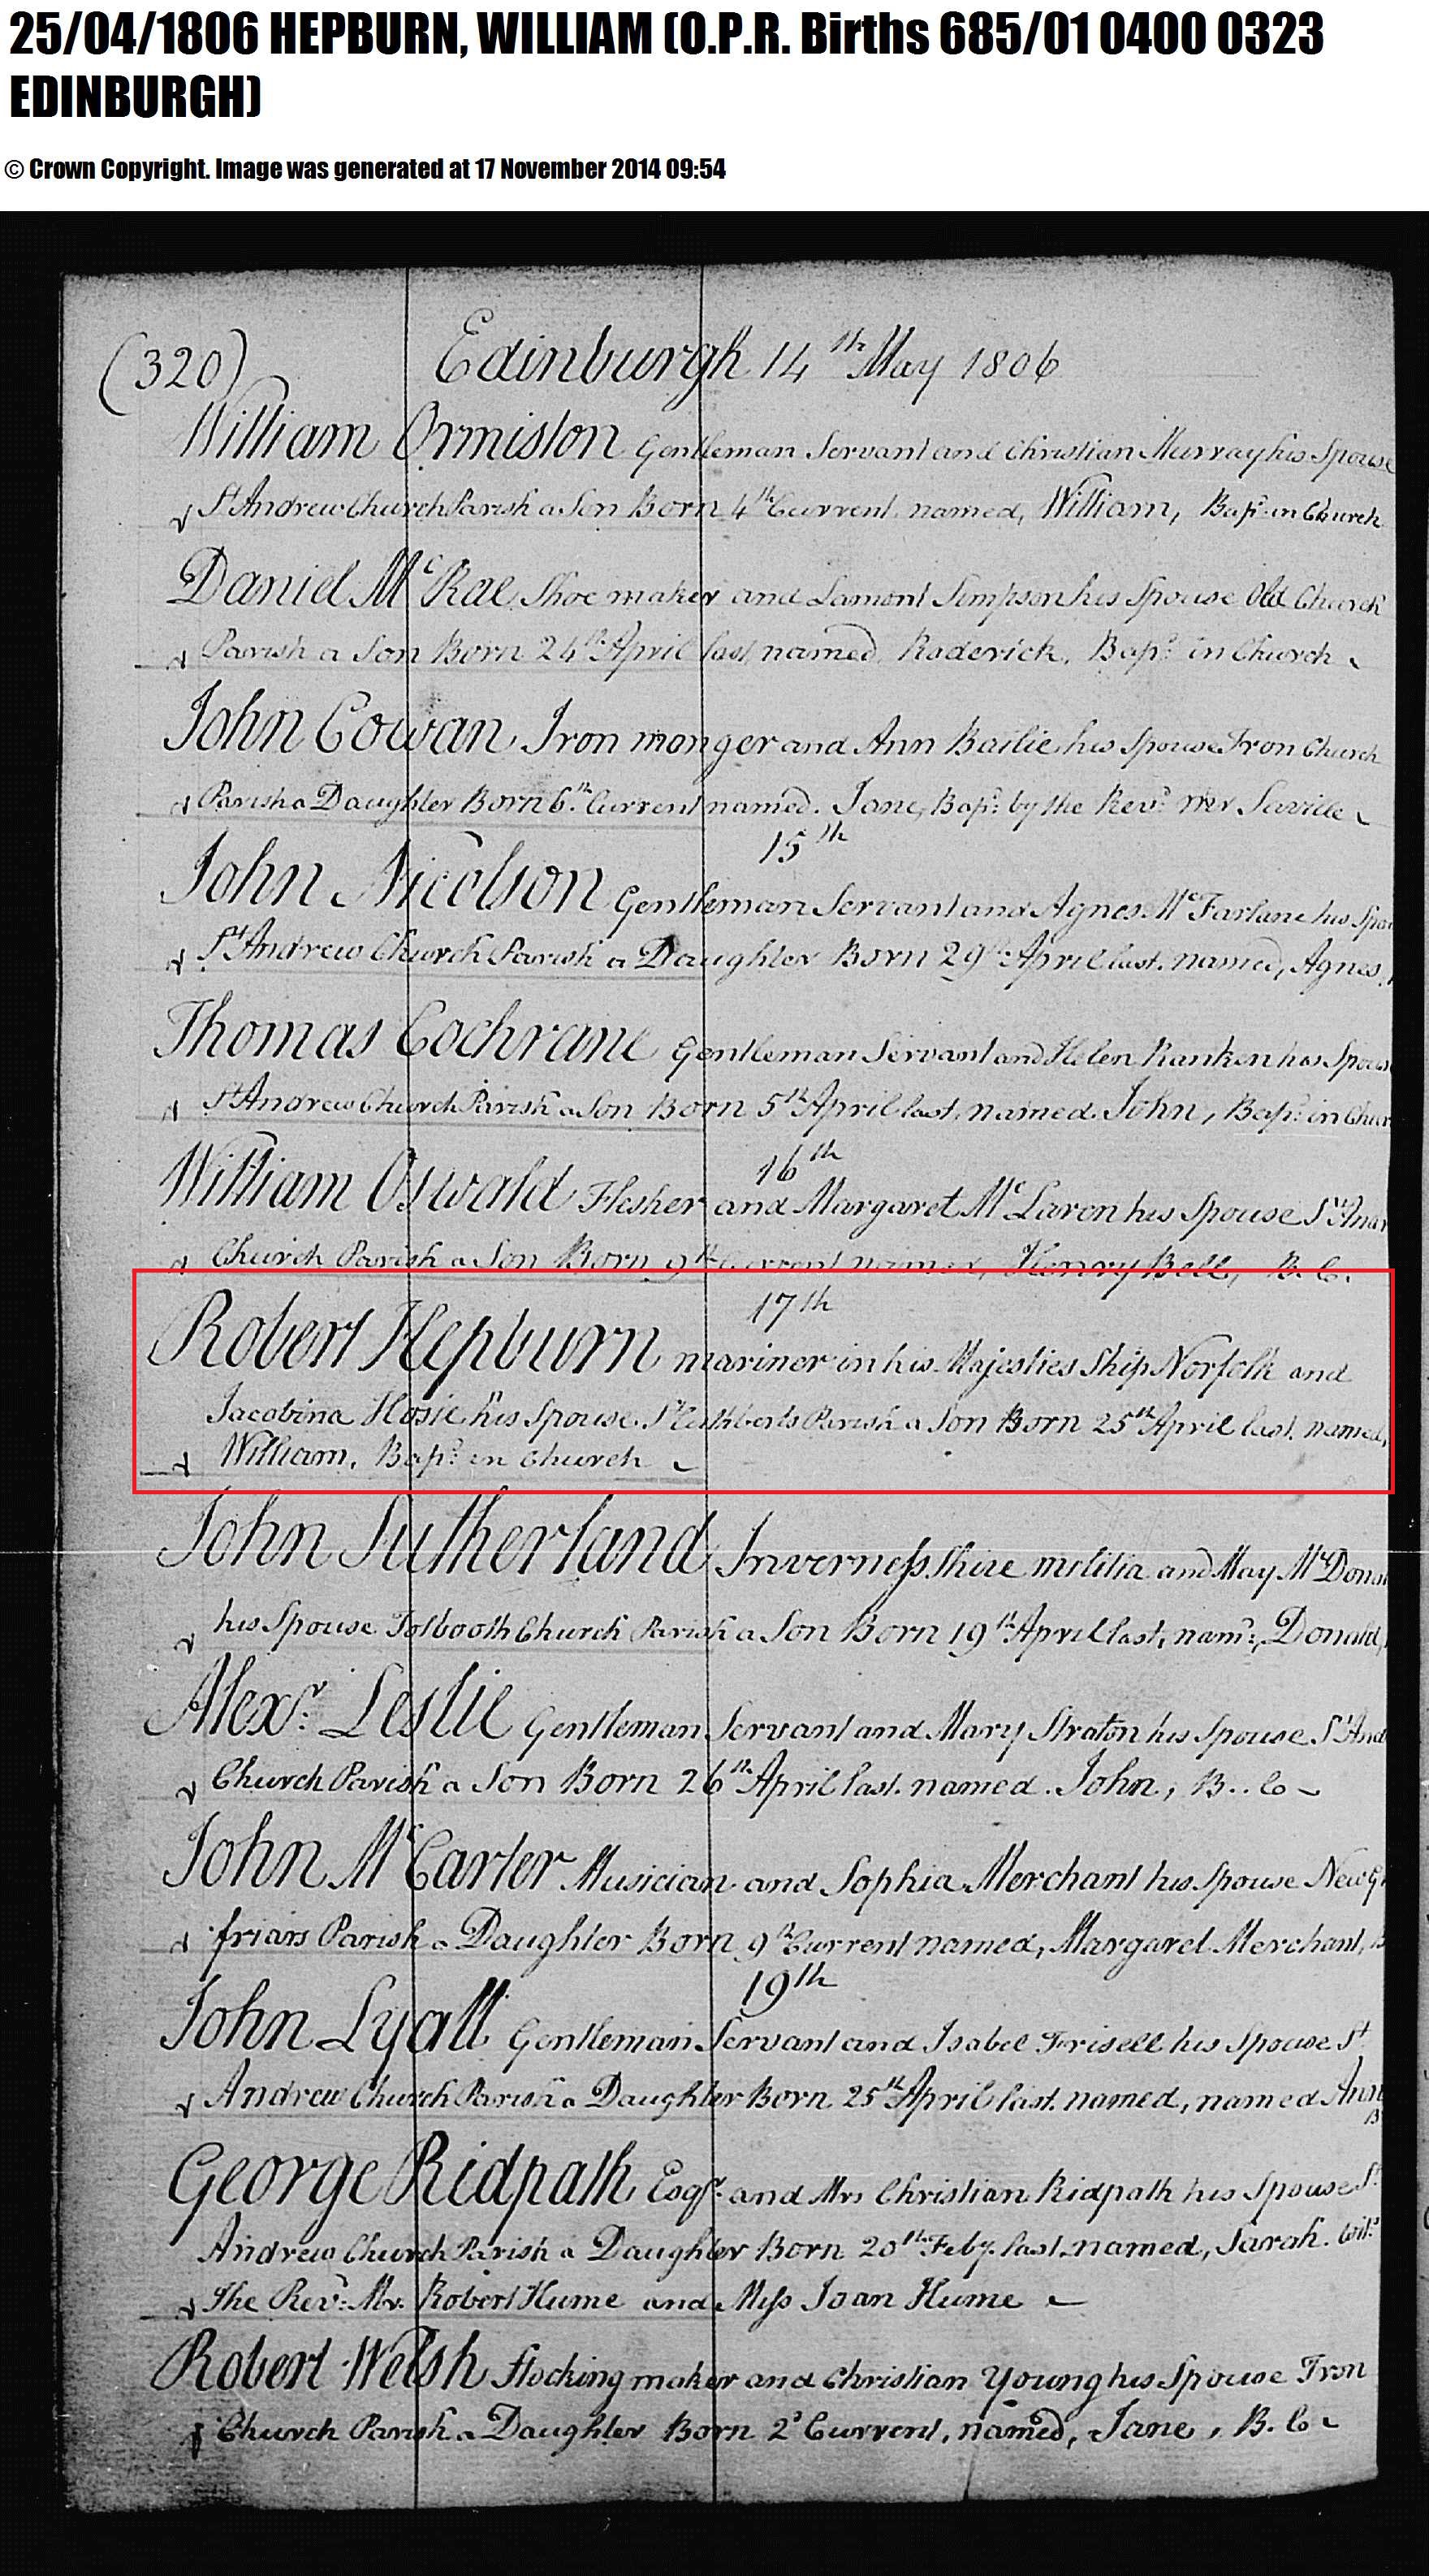 25/04/1806 HEPBURN, WILLIAM (O.P.R. Births 685/01 0400 0323
EDINBURGH)
© Crown Copyright. Image was generated at 17 November 2014 09:54
(320) Edinburgh 14th May 1806
William Ormiston Gentleman Servant and Christian Murray his Spouse
St Andrew Church Parish a Son Born 4th Current named, William, Bapt. in Church
Daniel McRae Shoe maker and Lamont Simpson his Spouse Old Church
Parish a Son Born 24th April last, named Roderick, Bapt. in Church
John Cowan, Iron monger and Ann Bailie his Spouse Tron Church
Parish a Daughter Born 6th Current named. Jane, Bapt. by the Revd. Mr Saville
15th
John Nicolson Gentleman Servant and Agnes McFarlane his Spou
St Andrew Church Parish a Daughter Born 29th April last. named, Agnes,
Thomas Cochrane Gentleman Servant and Helen Ranken his Spous
St Andrew Church Parish a Son Born 5th April last, named John, Bapt. in Chur
16th
William Oswald Flesher and Margaret McLaren his Spouse St And
Church Parish a Son Born 9th Current named, Henry Bell, B. C.
17th
Robert Hepburn mariner in his Majesties Ship Norfolk and
Jacobina Hosie his Spouse. St Cuthberts Parish a Son Born 25th April last. named,
William, Bapt. in Church
John Sutherland Inverness Shire militia and May McDonal
his Spouse Tolbooth Church Parish a Son Born 19th April last, nam:, Donald,
Alexr. Leslie Gentleman Servant and Mary Straton his Spouse St And
Church Parish a Son Born 26th April last. named. John, B.. C
John McCarter Musician and Sophia Merchant his Spouse New G
friars Parish a Daughter Born 9th Current named, Margaret Merchant, B
19th
John Lyall Gentleman Servant and Isabel Frisell his Spouse St
Andrew Church Parish a Daughter Born 25th April last. named, named Ann
B
George Ridpath Esqr. and Mrs Christian Ridpath his Spouse St.
Andrew Church Parish a Daughter Born 20th Feby. last. named, Sarah. Wits
The Revd: Mr. Robert Hume and Miss Joan Hume
Robert Welsh Stocking maker and Christian Young his Spouse Tron
Church Parish a Daughter Born 2d Current, named, Jane, B. C